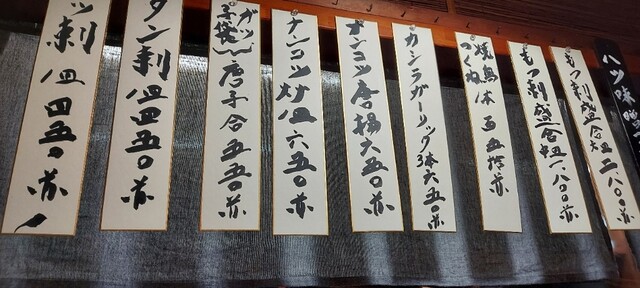 ハツ味噌
もつ刺盛合大皿二、八〇〇円
もつ刺盛合中皿一、八〇〇円
焼鳥つくね一本百五拾円
カシラガーリック3本六五〇円
ナンコツ唐揚六五〇円
ナンコツ炒一皿六五〇円
ガツ子袋唐辛合五五〇円
タン刺一皿四五〇円
ツ刺一皿四五〇円